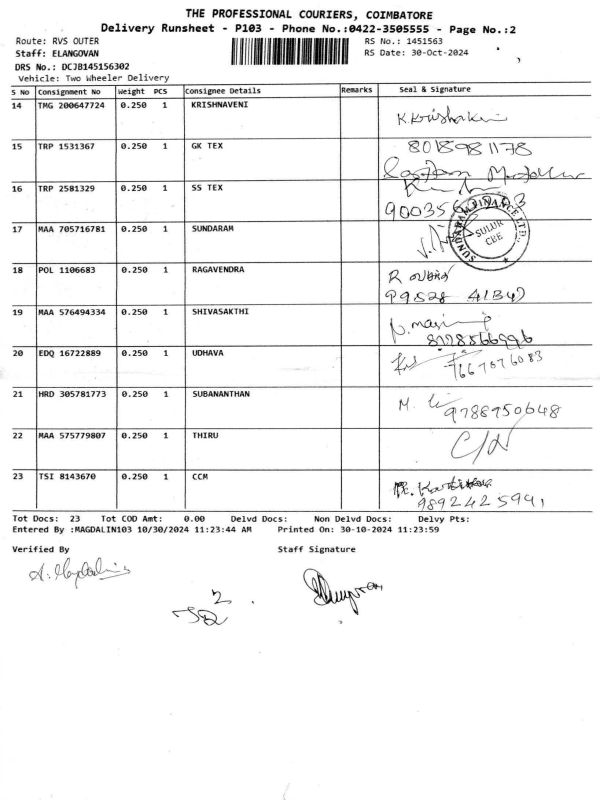 THE PROFESSIONAL COURIERS, COIMBATORE
Delivery Runsheet - P103 - Phone No.:0422-3505555 - Page No.:2
Route: RVS OUTER RS No.: 1451563
Staff: ELANGOVAN RS Date: 30-Oct-2024
DRS No.: DCJB145156302
Vehicle: Two Wheeler Delivery
S No Consignment No Weight PCS Consignee Details Remarks Seal & Signature
14 TMG 200647724 0.250 1 KRISHNAVENI
15 TRP 1531367 0.250 1 GK TEX 8015981178
16 TRP 2581329 0.250 1 SS TEX
17 MAA 705716781 0.250 1 SUNDARAM
SUNDARAM FINANCE LTD.
SULUR
CBE
18 POL 1106683 0.250 1 RAGAVENDRA R
19 MAA 576494334 0.250 1 SHIVASAKTHI
8128566996
20 EDQ 16722889 0.250 1 UDHAVA
7667676083
21 HRD 305781773 0.250 1 SUBANANTHAN M.
9788750648
22 MAA 575779807 0.250 1 THIRU
23 TSI 8143670 0.250 1 CCM
9892425991
Tot Docs: 23 Tot COD Amt: 0.00 Delvd Docs: Non Delvd Docs: Delvy Pts:
Entered By :MAGDALIN103 10/30/2024 11:23:44 AM Printed On: 30-10-2024 11:23:59
Verified By Staff Signature